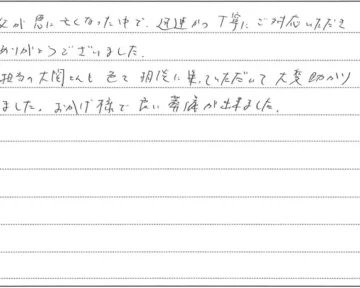 父が急に亡くなった中で、迅速かつ丁寧にご対応いただき
ありがとうございました。
担当の大関さんも色々 相談に乗っていただいて大変助かり
ました。おかげ様で良い葬儀が出来ました。